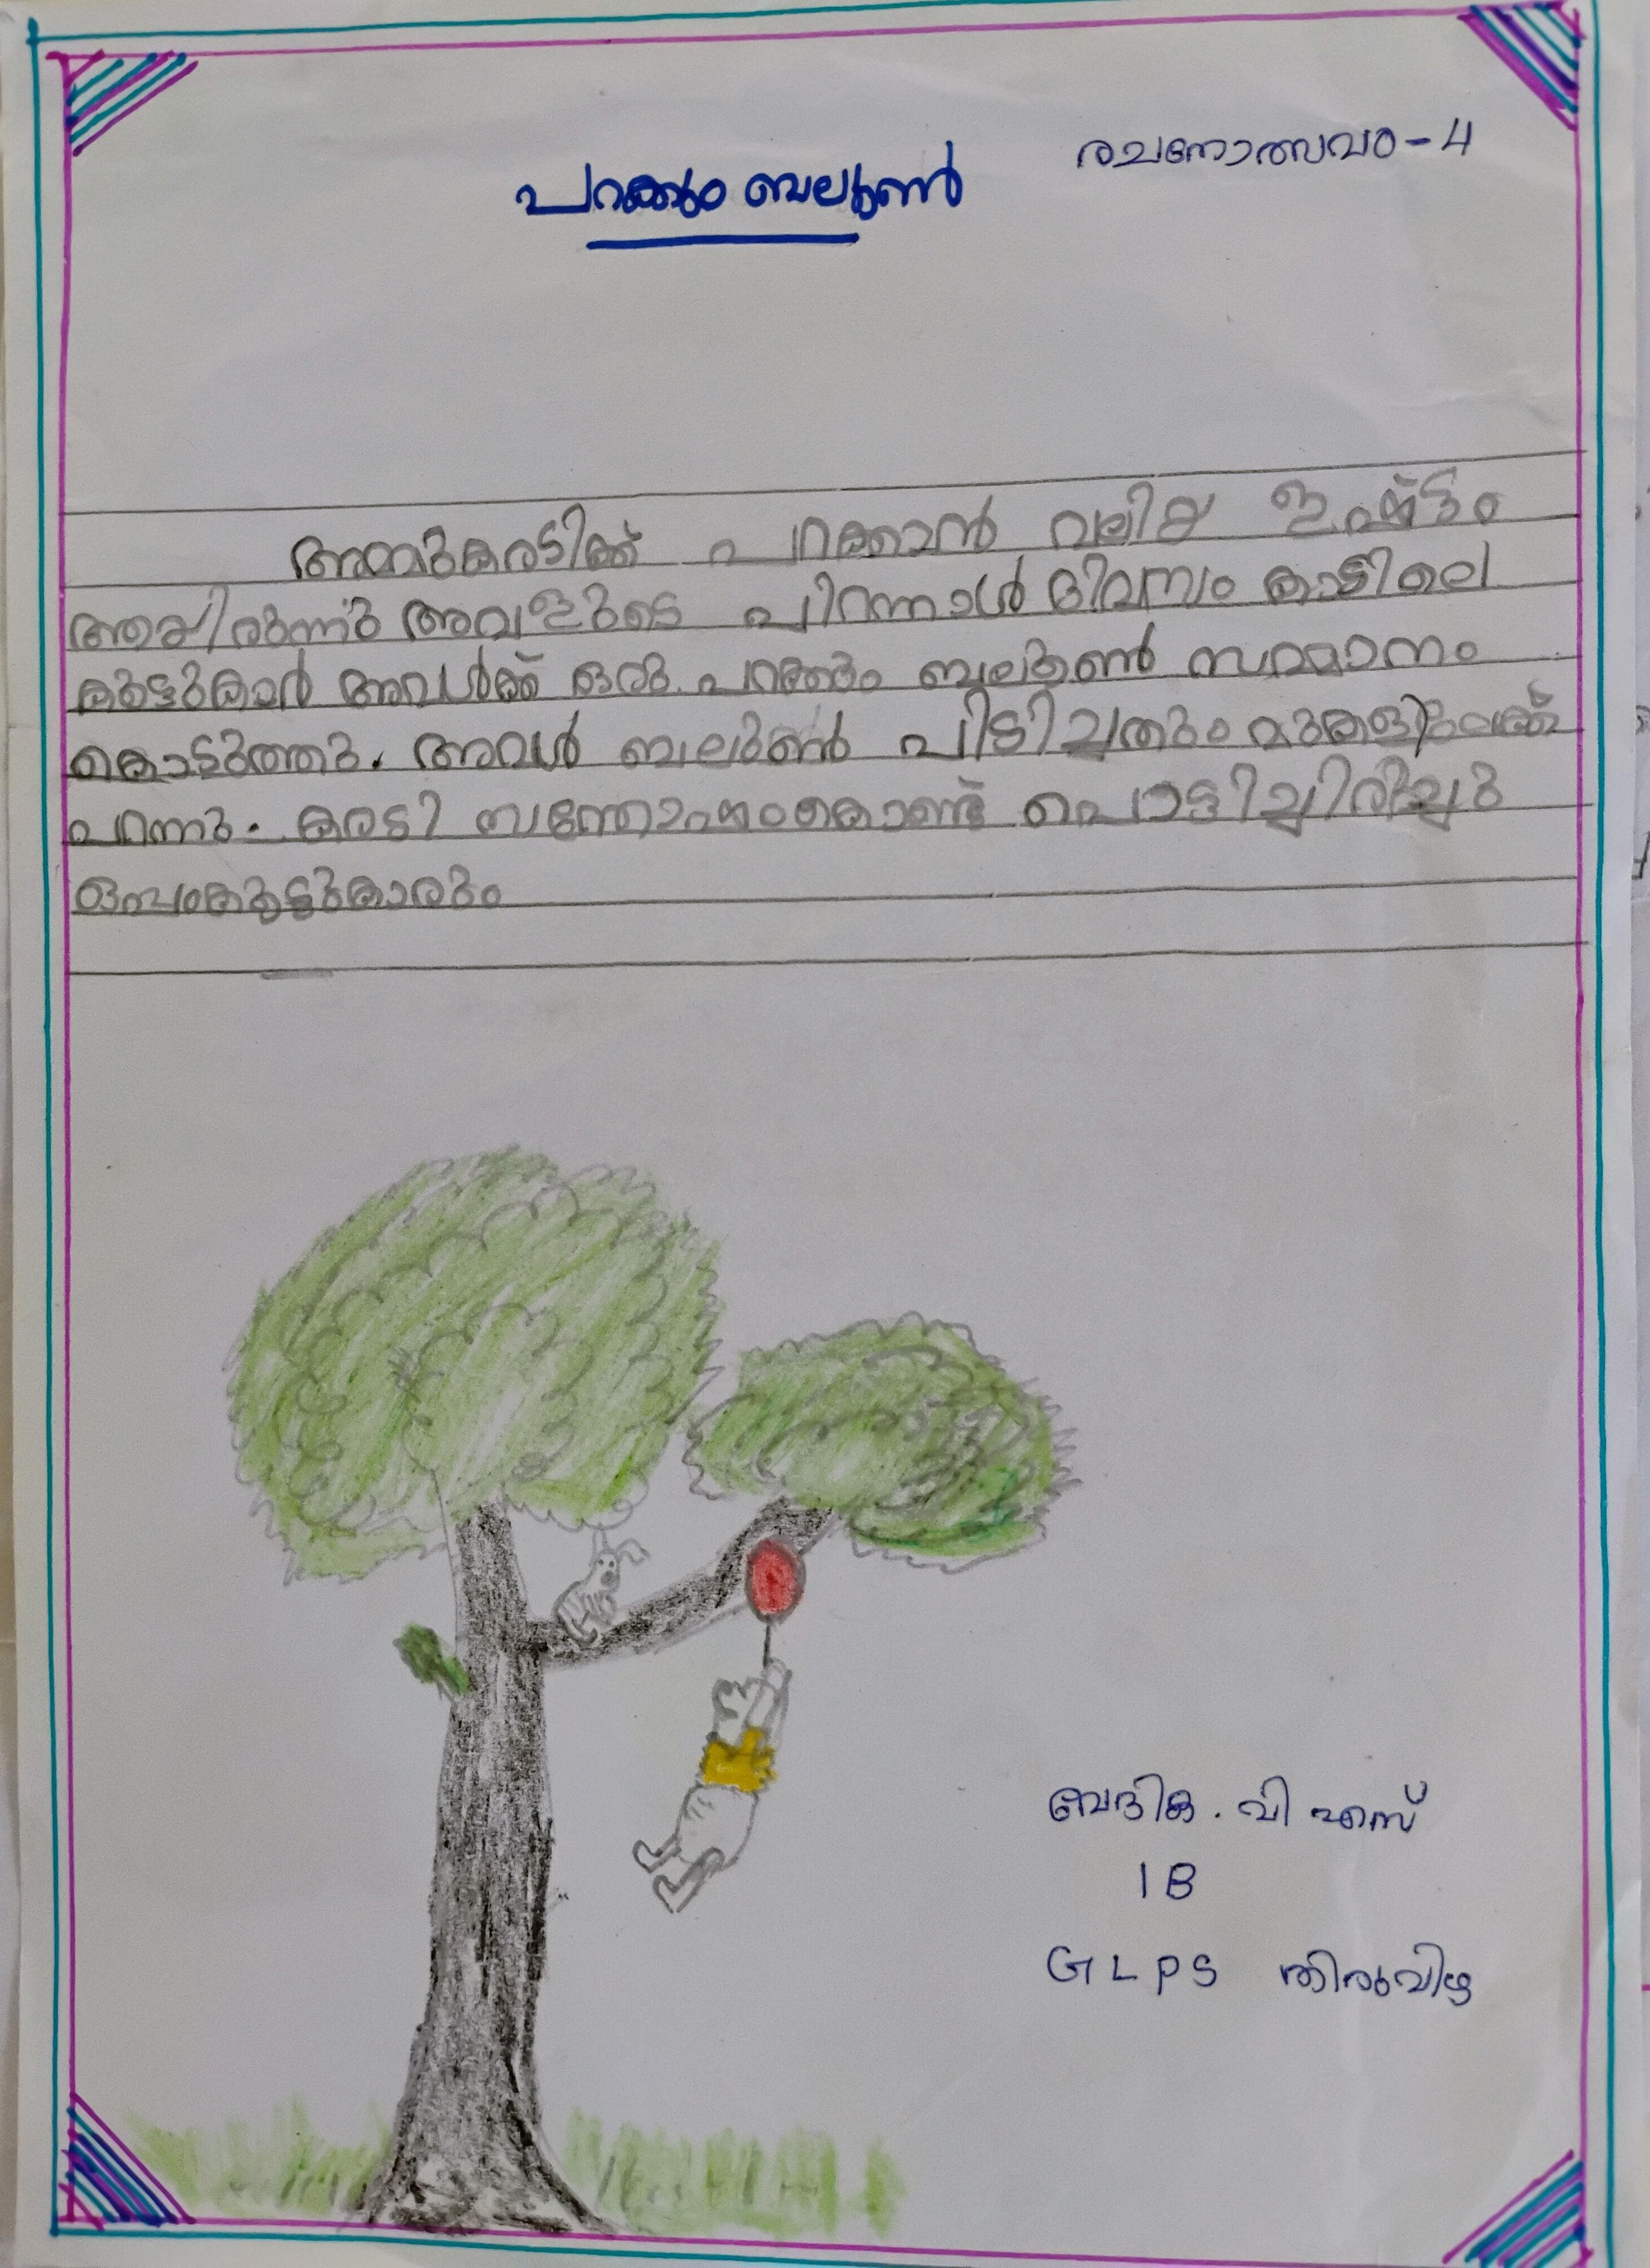 രചനോത്സവം-4
പറക്കും ബലൂൺ
അമ്മുകരടിക്ക് പറക്കാൻ വലിയ ഇഷ്ട്ടം
ആയിരുന്നു അവളുടെ പിറന്നാൾ ദിവസം കാട്ടിലെ
കൂട്ടുകാർ അവൾക്ക് ഒരു പറക്കും ബലൂൺ സമ്മാനം
കൊടുത്തു. അവൾ ബലൂൺ പിടിച്ചതും മുകളിലേക്ക്
പറന്നു. കരടി സന്തോഷംകൊണ്ട് പൊട്ടിച്ചിരിച്ചു
ഒപ്പംകൂട്ടുകാരും
വേദിക. വി എസ്
1 B
GLPS തിരുവിഴ